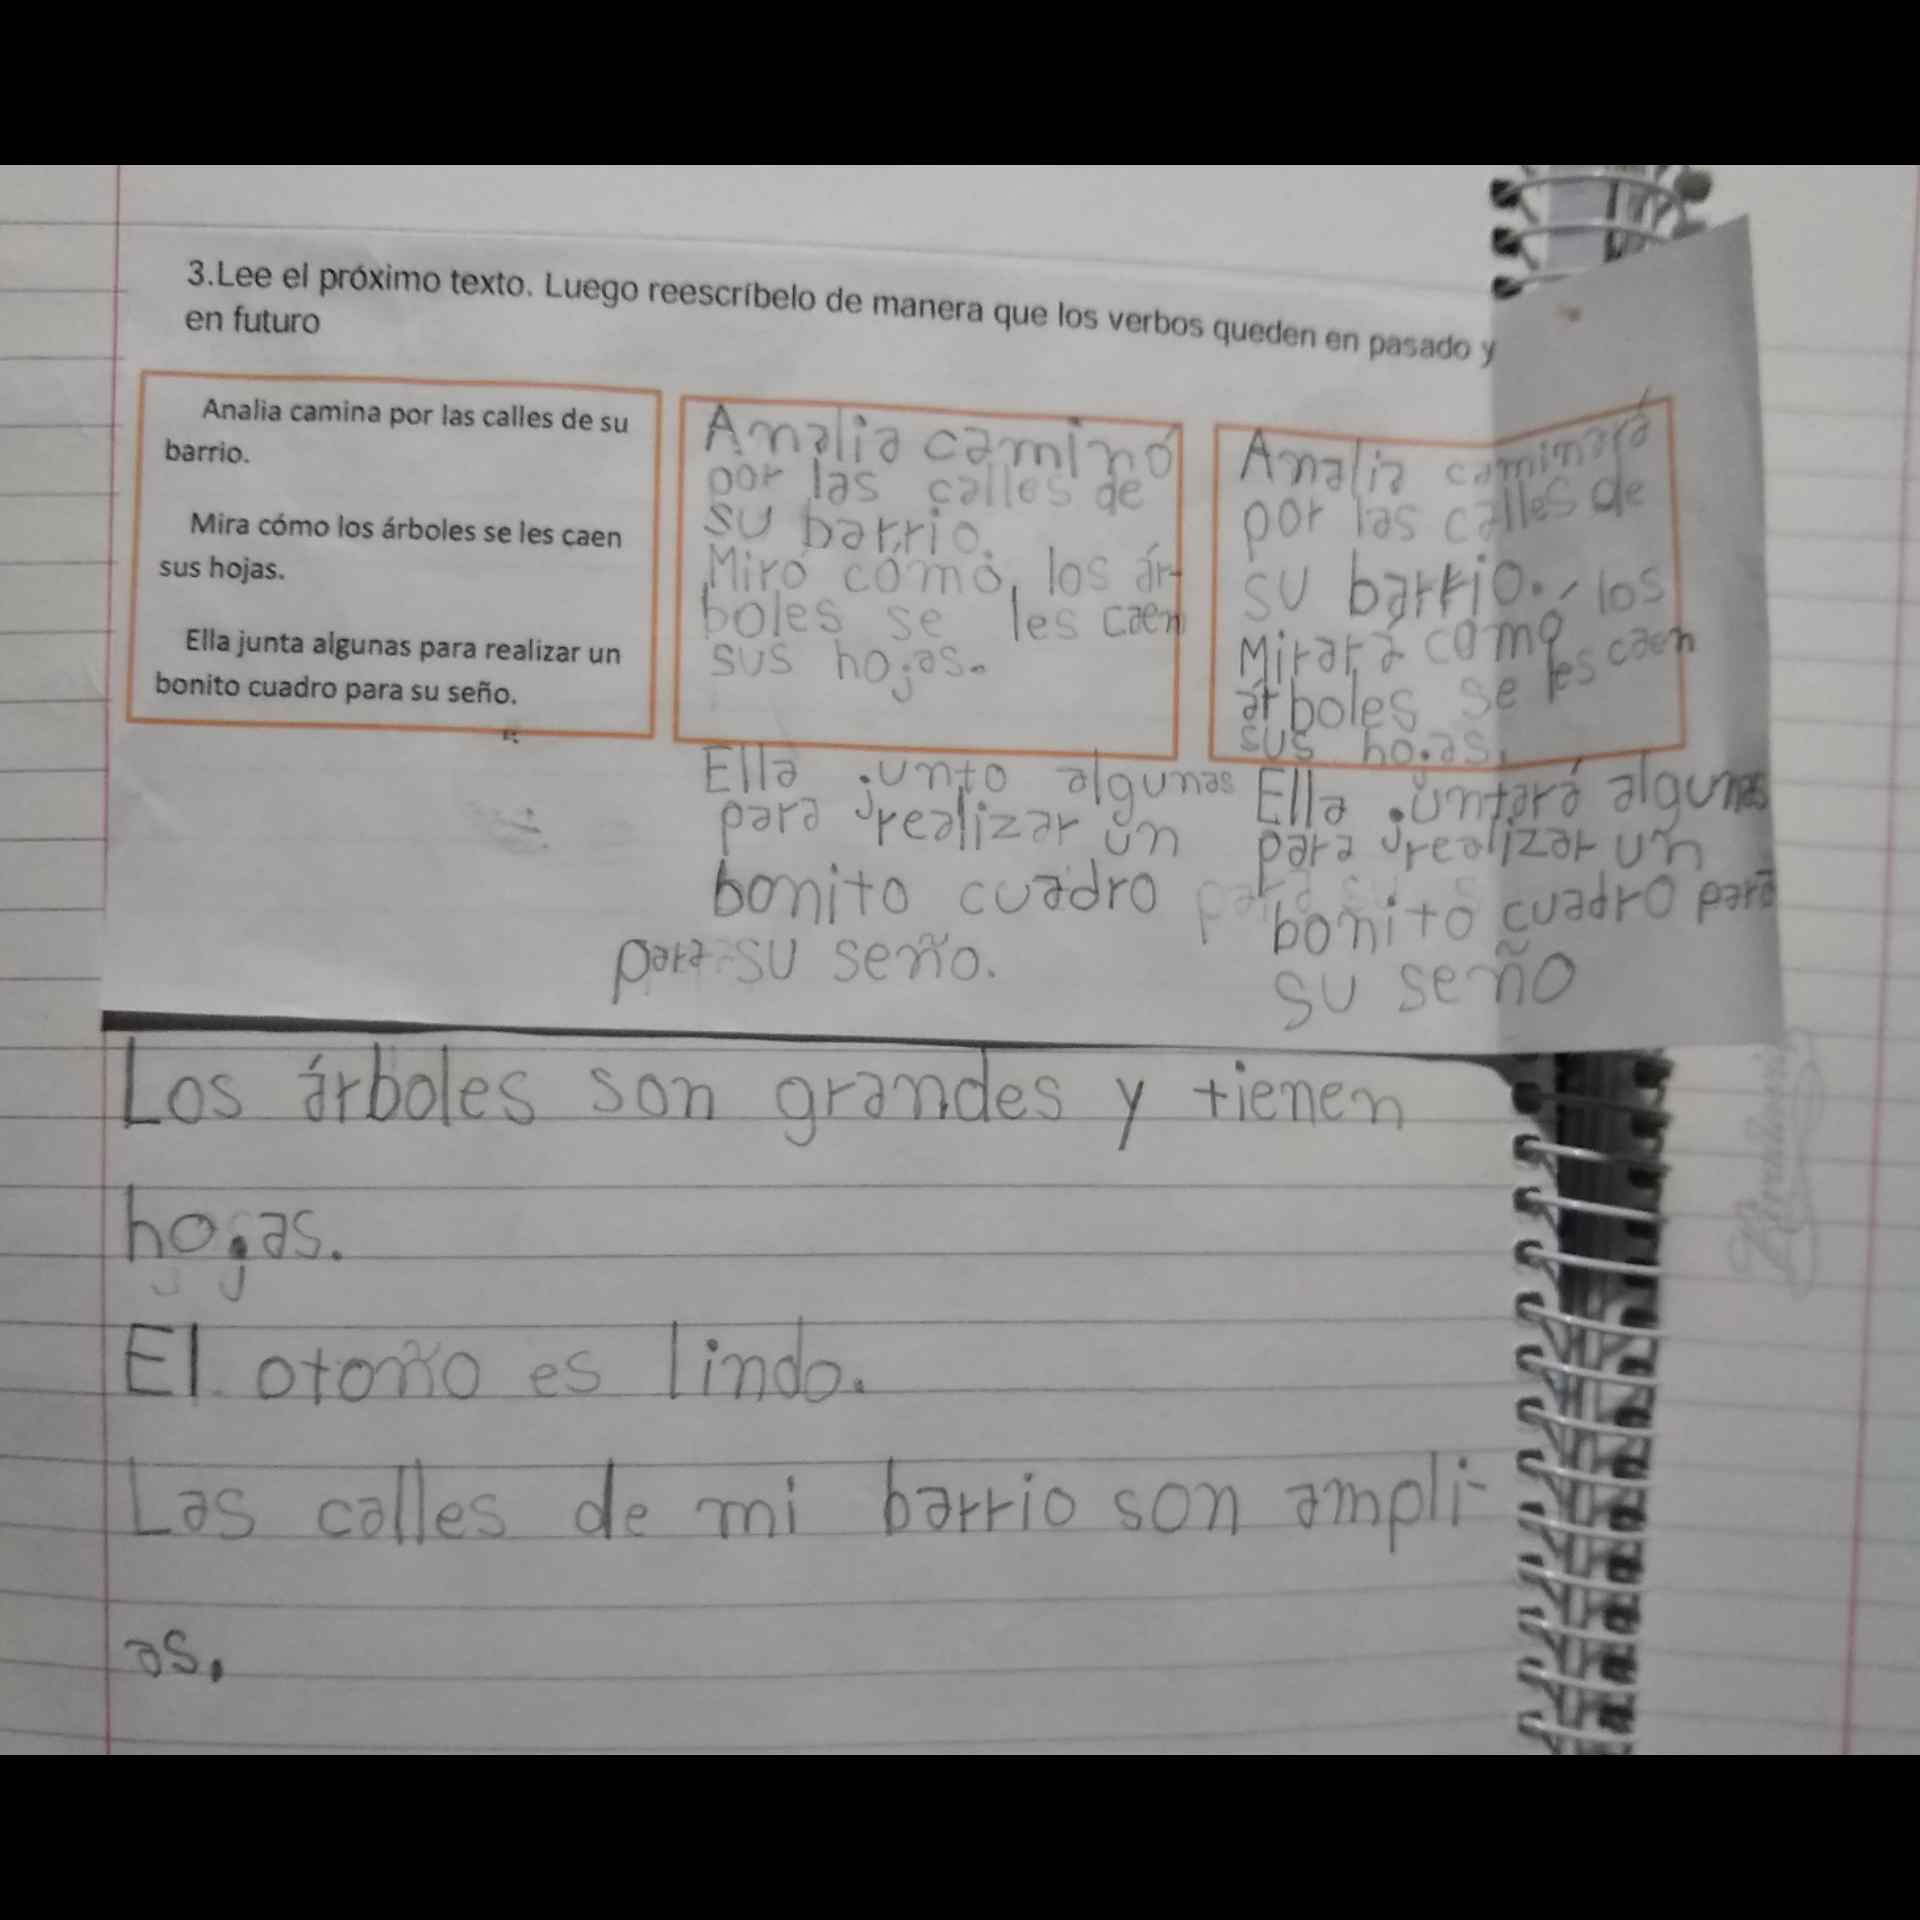 3.Lee el próximo texto. Luego reescríbelo de manera que los verbos queden en pasado y
en futuro
Analia camina por las calles de su
barrio.
Mira cómo los árboles se les caen
sus hojas.
Ella junta algunas para realizar un
bonito cuadro para su seño.
Analia caminó
por las calles de
su barrio.
Miró como, los ár-
boles se les caen
sus hojas.
Ella junto algunas
para realizar un
bonito cuadro
para su seño.
Analia caminará
por las calles de
su barrio. los
Mirará como
árboles se les caen
sus hojas.
Ella juntará algunas
para realizar un
bonito cuadro para
su seño
Los árboles son grandes y tienen
hojas.
El otoño es lindo.
Las calles de mi barrio son ampli-
as.